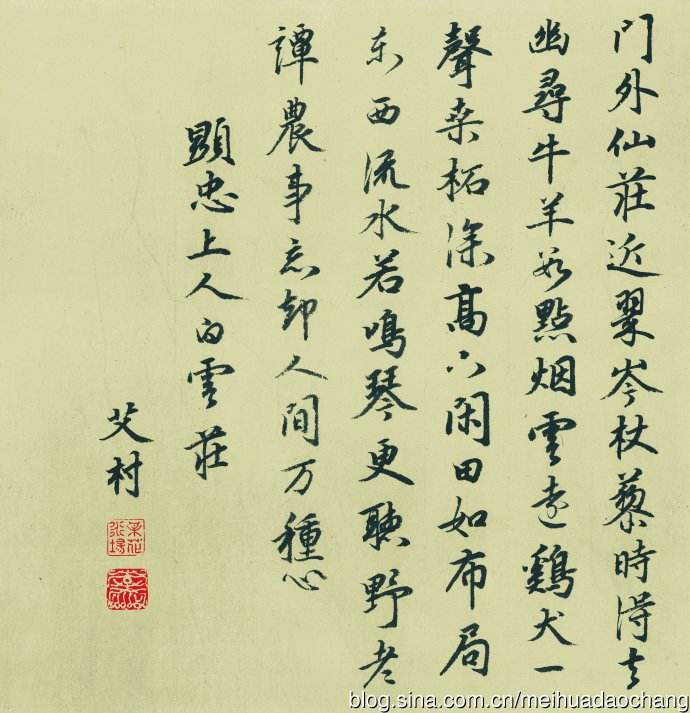 門外仙莊近翠岑杖藜時得去
幽尋牛羊数點烟雲遠鷄犬一
聲桑柘深高下閑田如布局
东西流水若鳴琴更聽野老
譚農事忘却人間万種心
顯忠上人白雲莊
艾村
blog.sina.com.cn/meihuadaochang